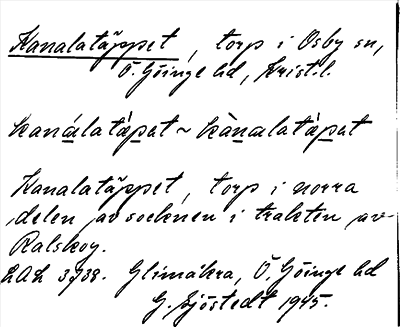 Kanalatäppet, torp i Osby sn,
Ö. Göinge hd, Krist. l.
kanálatàpat ~ kànalatàpat
Kanalatäppet, torp i norra
delen av socknen i trakten av
Ralskog.
LAL 3938. Glimåkra, Ö. Göinge hd
G. Sjöstedt 1945.